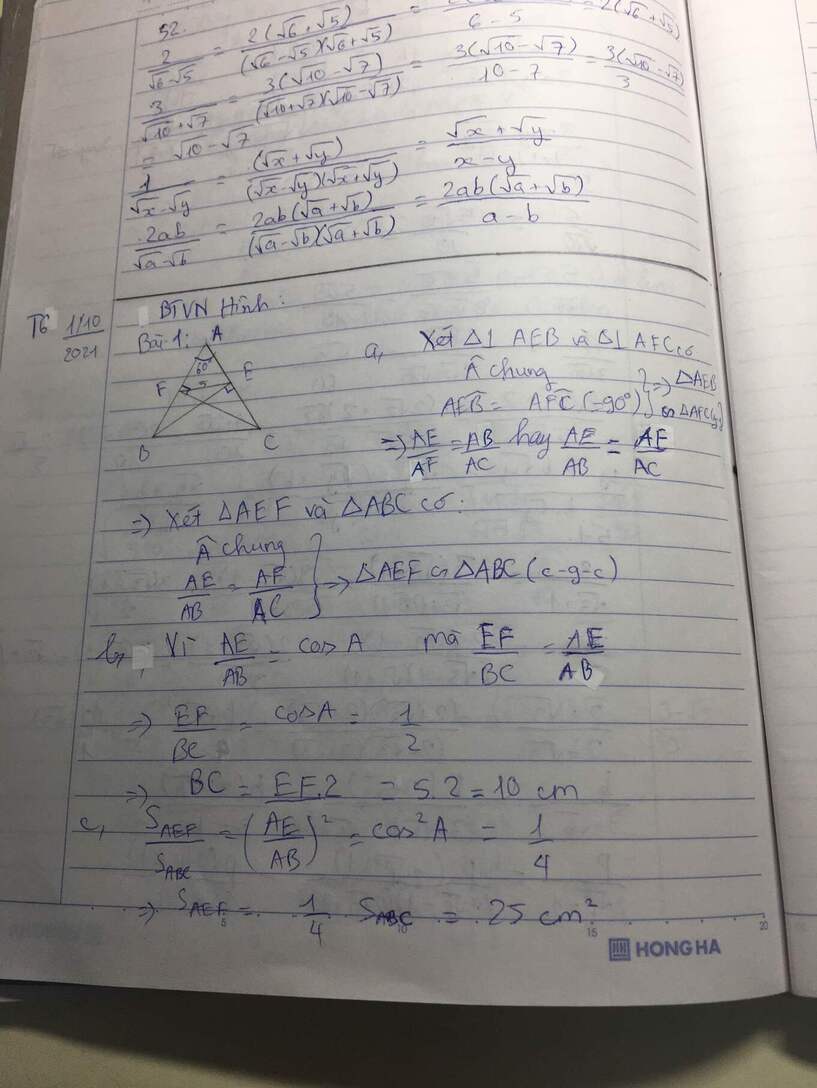 52.
2/(√6-√5) = 2(√6+√5)/((√6-√5)(√6+√5)) = /(6-5) = 2(√6+√5)
3/(√10+√7) = 3(√10-√7)/((√10+√7)(√10-√7)) = 3(√10-√7)/(10-7) = 3(√10-√7)/3
= √10-√7
1/(√x-√y) = (√x+√y)/((√x-√y)(√x+√y)) = (√x+√y)/(x-y)
2ab/(√a-√b) = 2ab(√a+√b)/((√a-√b)(√a+√b)) = 2ab(√a+√b)/(a-b)
T6 1/10/2021
BTVN Hình:
Bài 1:
A
60°
F 5 E
B C
a, Xét Δ⊥ AEB và Δ⊥ AFC có
Â chung
AÊB = AF̂C (=90°) } => ΔAEB ∽ ΔAFC
=> AE/AF = AB/AC hay AE/AB = AF/AC
=> Xét ΔAEF và ΔABC có:
Â chung
AE/AB = AF/AC } => ΔAEF ∽ ΔABC (c-g-c)
b, Vì AE/AB = cosA mà EF/BC = AE/AB
=> EF/BC = cosA = 1/2
=> BC = EF.2 = 5.2 = 10 cm
c, S_AEF/S_ABC = (AE/AB)² = cos²A = 1/4
=> S_AEF = 1/4 S_ABC = 25 cm²
5 10 15 20
HONG HA